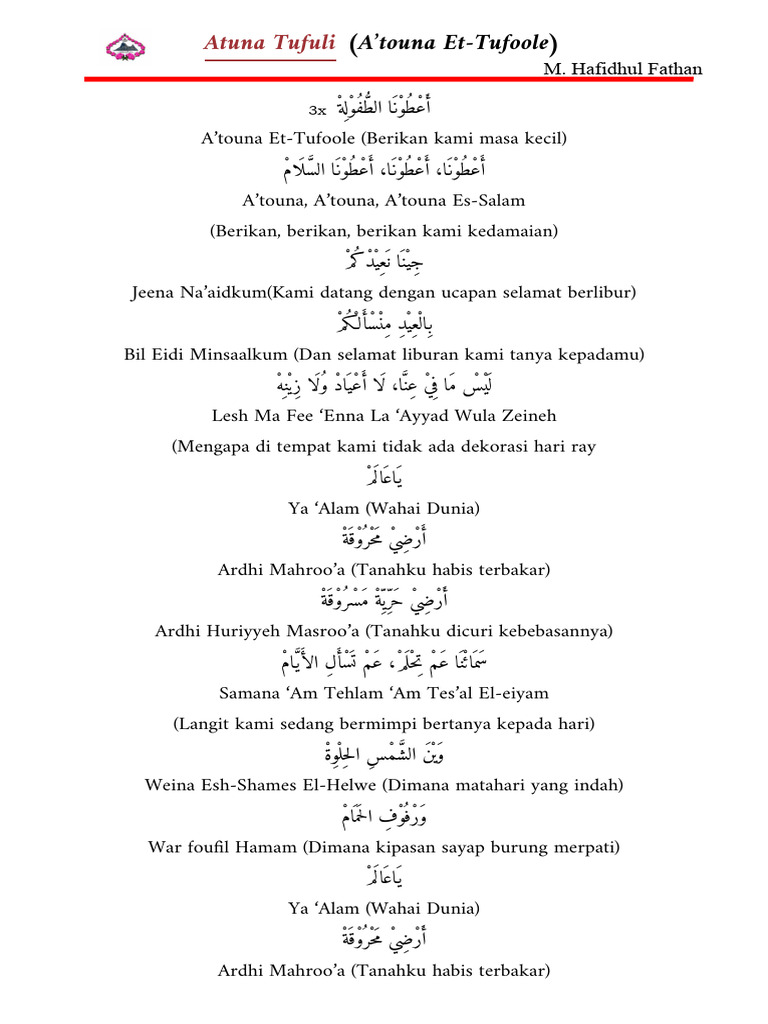 Atuna Tufuli (A’touna Et-Tufoole)
M. Hafidhul Fathan
أَعْطُوْنَا الطُّفُوْلِةْ 3x
A’touna Et-Tufoole (Berikan kami masa kecil)
أَعْطُوْنَا، أَعْطُوْنَا، أَعْطُوْنَا السَّلَامْ
A’touna, A’touna, A’touna Es-Salam
(Berikan, berikan, berikan kami kedamaian)
جِيْنَا نَعِيْدْكُمْ
Jeena Na’aidkum(Kami datang dengan ucapan selamat berlibur)
بِالْعِيْدِ مِنْسْأَلْكُمْ
Bil Eidi Minsaalkum (Dan selamat liburan kami tanya kepadamu)
لَيْسْ مَا فِيْ عِنَّا، لَا أَعْيَادْ وُلَا زِيْنِهْ
Lesh Ma Fee ‘Enna La ‘Ayyad Wula Zeineh
(Mengapa di tempat kami tidak ada dekorasi hari ray
يَاعَالَمْ
Ya ‘Alam (Wahai Dunia)
أَرْضِيْ مَحْرُوْقَةْ
Ardhi Mahroo’a (Tanahku habis terbakar)
أَرْضِيْ حَرِّيِّةْ مَسْرُوْقَةْ
Ardhi Huriyyeh Masroo’a (Tanahku dicuri kebebasannya)
سَمَائْنَا عَمْ تِحْلَمْ، عَمْ تَسْأَلِ الأَيَّامْ
Samana ‘Am Tehlam ‘Am Tes’al El-eiyam
(Langit kami sedang bermimpi bertanya kepada hari)
وَيْنَ الشَّمْسِ الحِلْوِةْ
Weina Esh-Shames El-Helwe (Dimana matahari yang indah)
وَرْفُوْفِ الحَمَامْ
War foufil Hamam (Dimana kipasan sayap burung merpati)
يَاعَالَمْ
Ya ‘Alam (Wahai Dunia)
أَرْضِيْ مَحْرُوْقَةْ
Ardhi Mahroo’a (Tanahku habis terbakar)